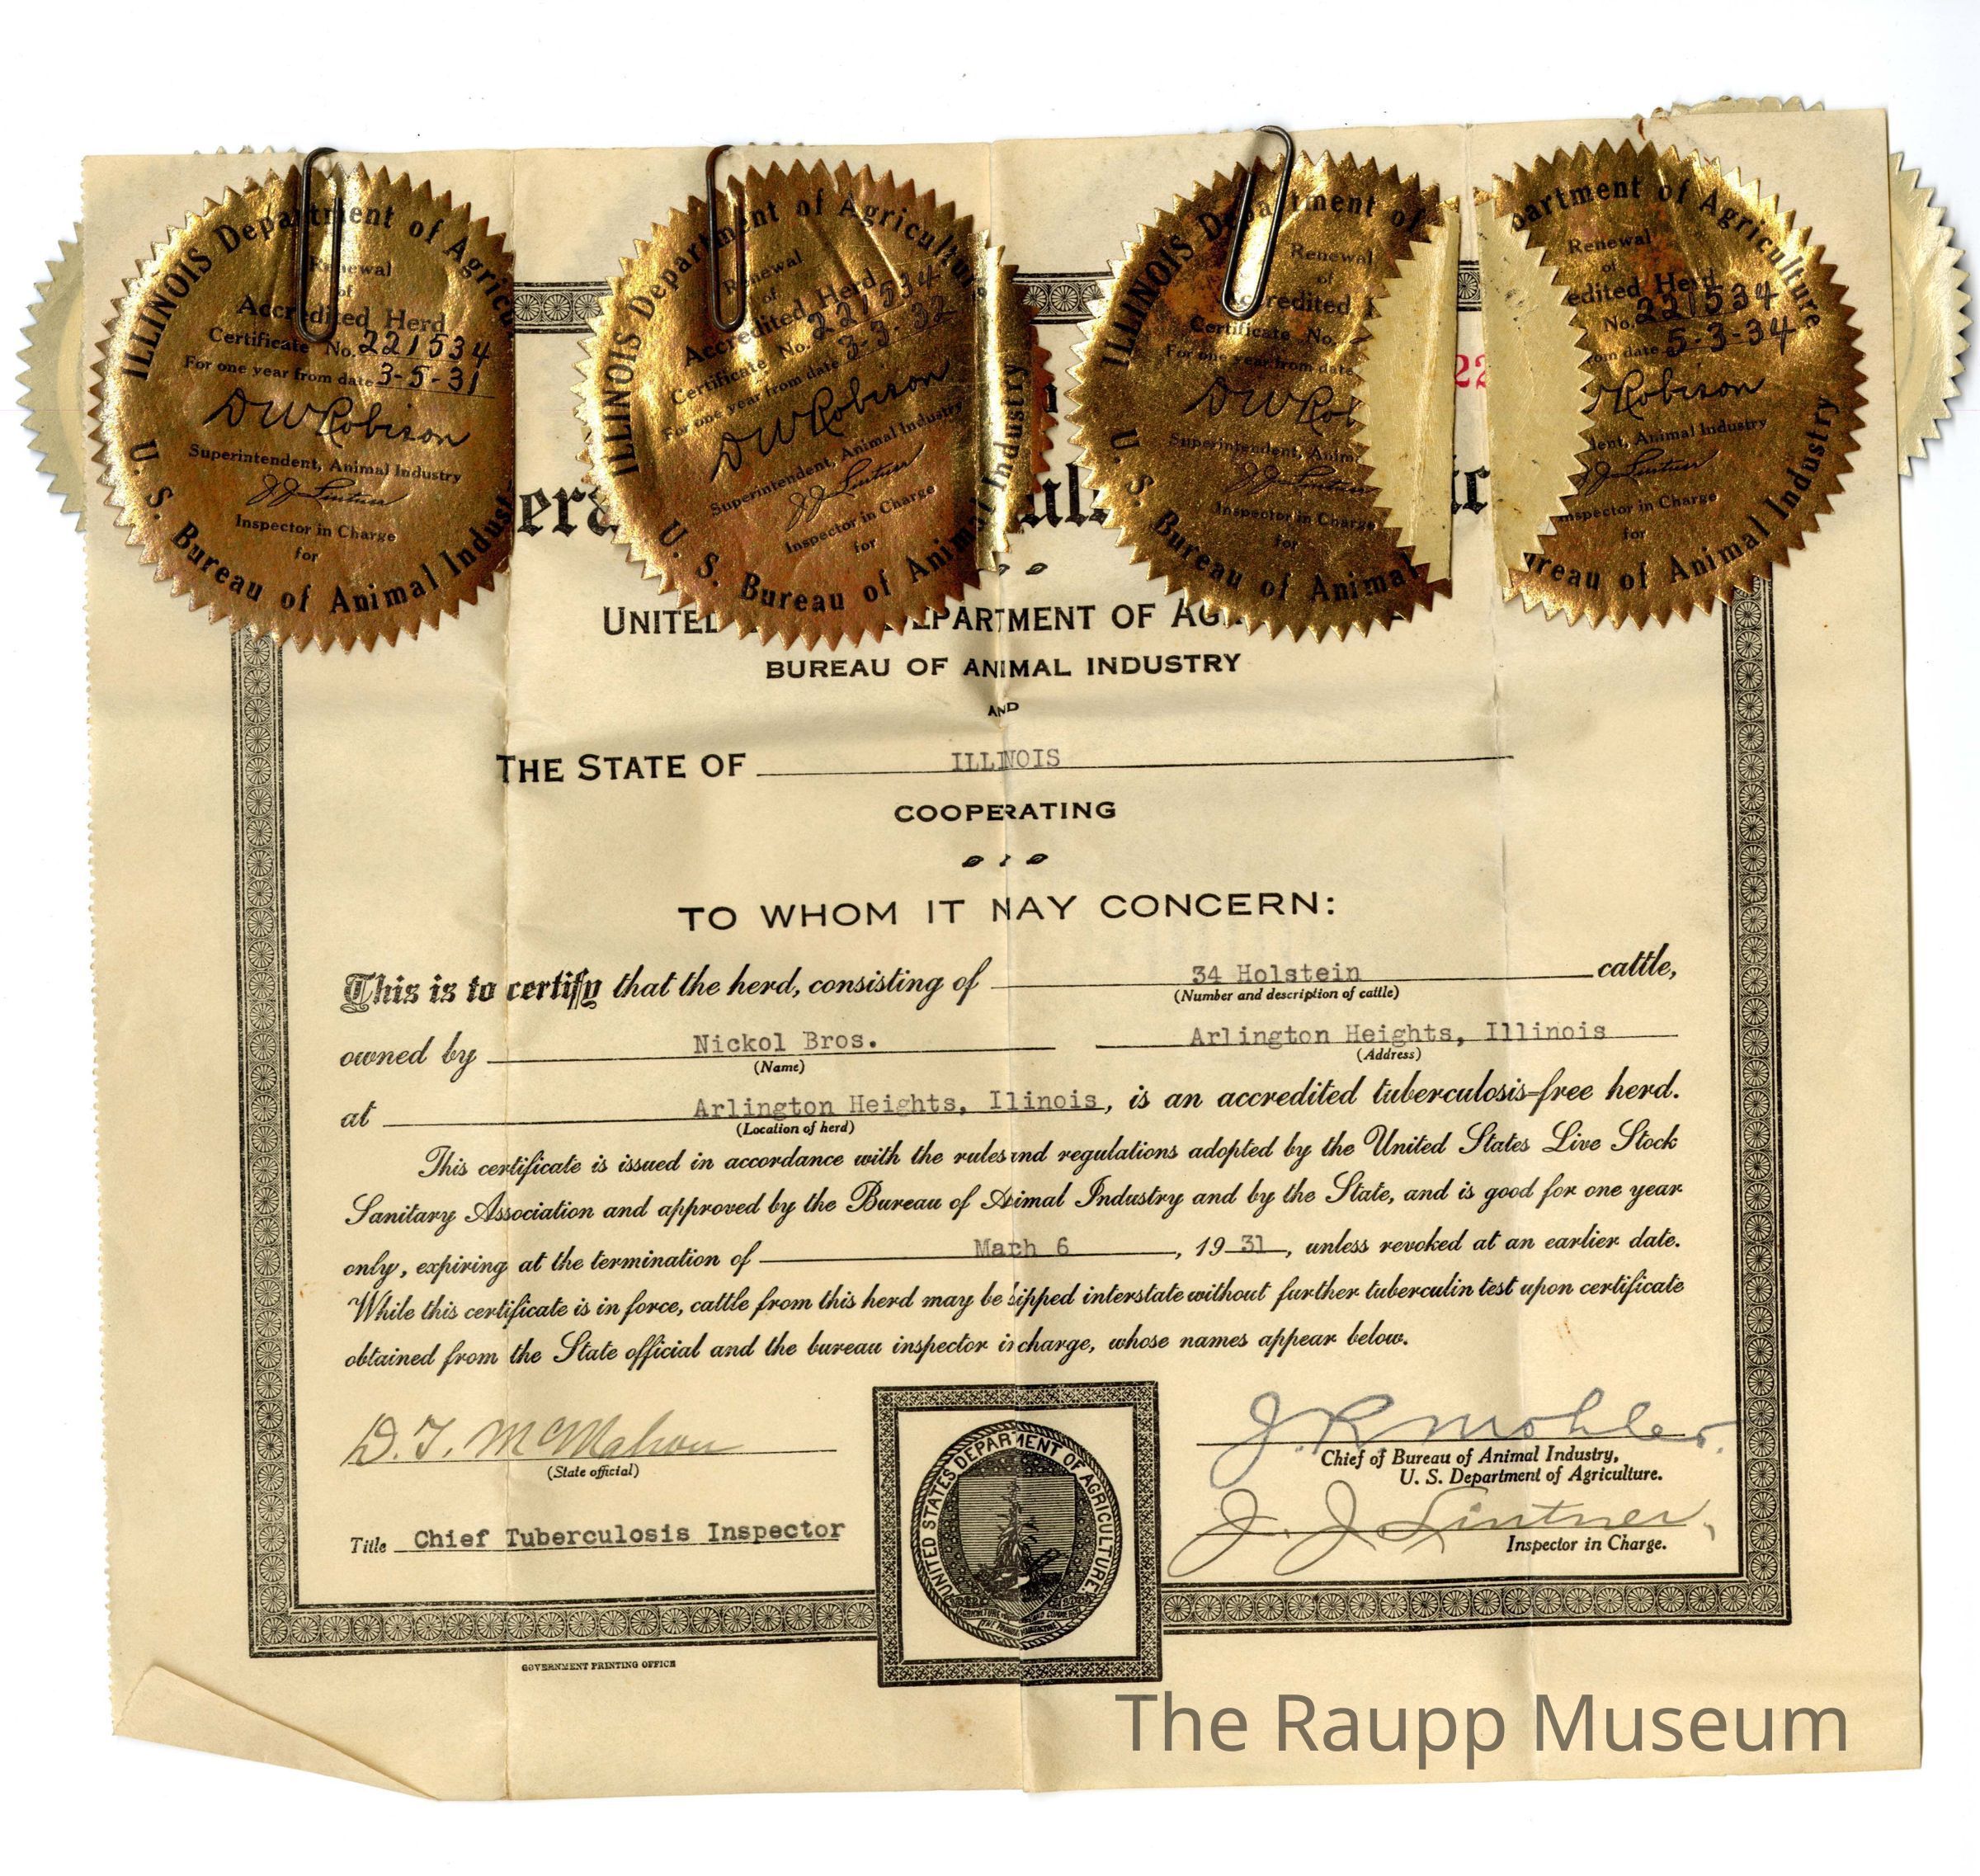 ILLINOIS Department of Agricu
Renewal
of
Accredited Herd
Certificate No. 221534
For one year from date 3-5-31
DW Robison
Superintendent, Animal Industry
J J Lintner
Inspector in Charge
for
U. S. Bureau of Animal Indust
ILLINOIS Department of Agriculture
Renewal
of
Accredited Herd
Certificate No. 221534
For one year from date 3-3-32
DW Robison
Superintendent, Animal Industry
J J Lintner
Inspector in Charge
for
U. S. Bureau of Animal Industry
ILLINOIS Department of
Renewal
of
Accredited
Certificate No.
For one year from date
DW Rob
Superintendent, Anim
J J Lintner
Inspector in Charge
for
U. S. Bureau of Animal
partment of Agriculture
Renewal
of
edited Herd
No. 221534
om date 5-3-34
Robison
dent, Animal Industry
J J Lintner
Inspector in Charge
for
ureau of Animal Industry
22
UNITED DEPARTMENT OF AG
BUREAU OF ANIMAL INDUSTRY
AND
THE STATE OF ILLINOIS
COOPERATING
TO WHOM IT MAY CONCERN:
This is to certify that the herd, consisting of 34 Holstein cattle,
(Number and description of cattle)
owned by Nickol Bros. Arlington Heights, Illinois
(Name) (Address)
at Arlington Heights, Ilinois, is an accredited tuberculosis-free herd.
(Location of herd)
This certificate is issued in accordance with the rules and regulations adopted by the United States Live Stock
Sanitary Association and approved by the Bureau of Animal Industry and by the State, and is good for one year
only, expiring at the termination of March 6, 19 31, unless revoked at an earlier date.
While this certificate is in force, cattle from this herd may be shipped interstate without further tuberculin test upon certificate
obtained from the State official and the bureau inspector in charge, whose names appear below.
D. T. McMahon
(State official)
Title Chief Tuberculosis Inspector
J. R. Mohler.
Chief of Bureau of Animal Industry,
U. S. Department of Agriculture.
J. J. Lintner,
Inspector in Charge.
UNITED STATES DEPARTMENT OF AGRICULTURE
GOVERNMENT PRINTING OFFICE
The Raupp Museum